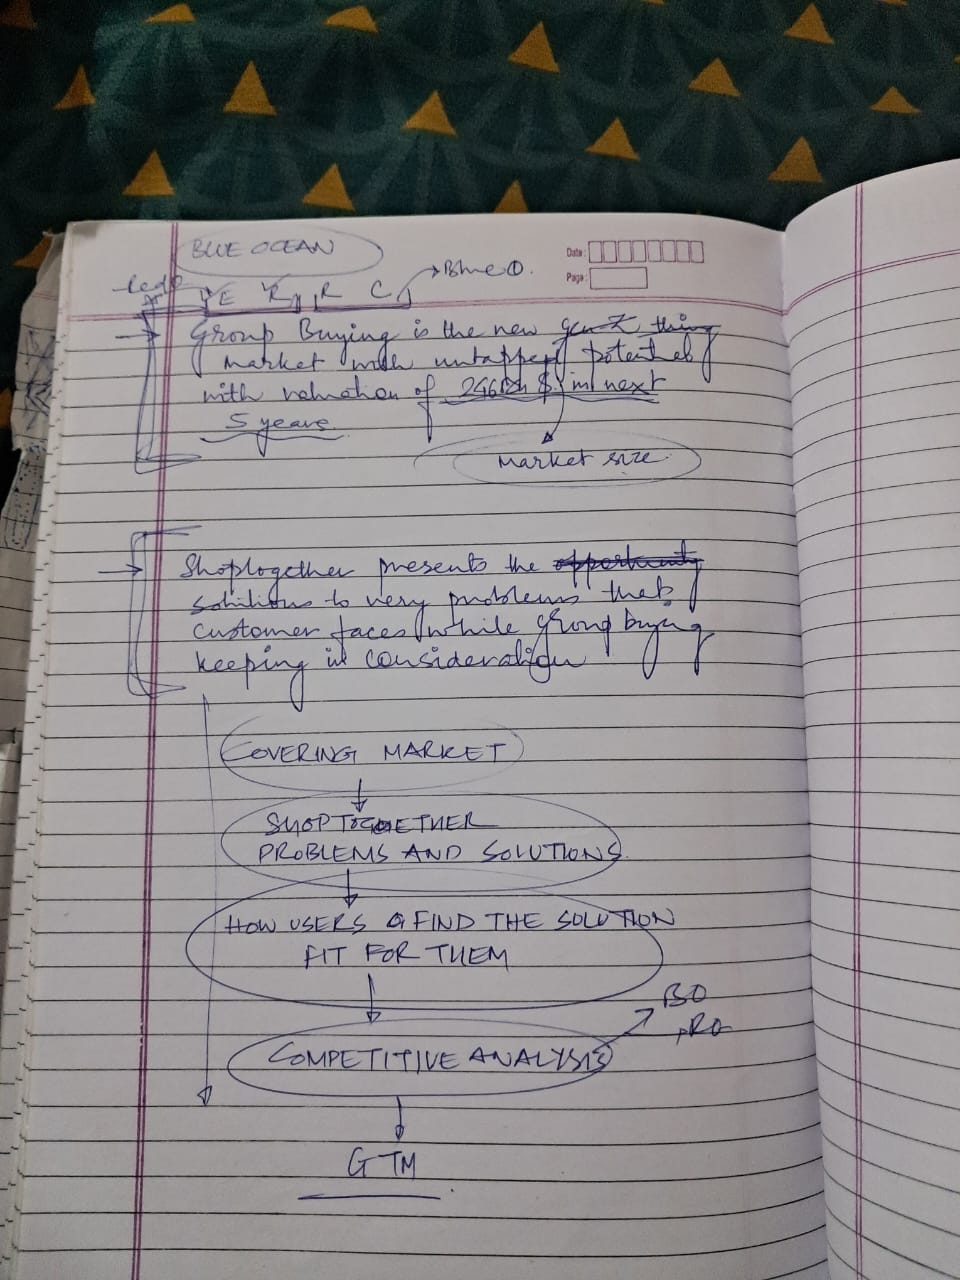 BLUE OCEAN
Date:
Page:
E R R C
Blue O.
Group Buying is the new gen Z thing
market with untapped potential
with valuation of $ in next
5 years
market size
Shoptogether presents the opportunity
solutions to very problems that
customer faces while group buying
keeping in consideration
COVERING MARKET
SHOPTOGETHER
PROBLEMS AND SOLUTIONS
HOW USERS FIND THE SOLUTION
FIT FOR THEM
BO
RO
COMPETITIVE ANALYSIS
GTM